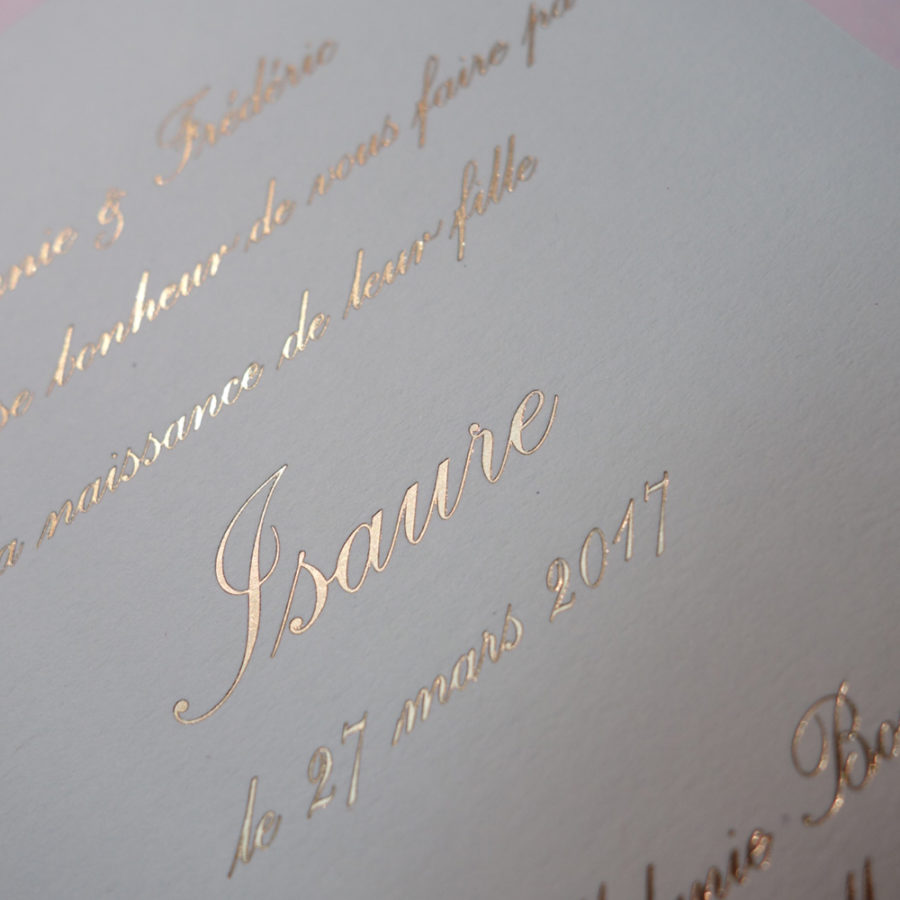 & Frédéric
bonheur de vous faire
naissance de leur fille
Isaure
le 27 mars 2017